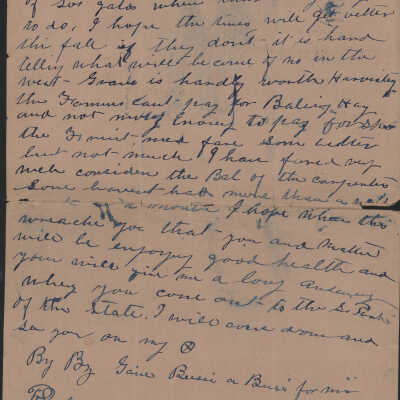 of Los gatos when
to do, I hope the times will get better
this fall if they don't - it is hard
telling what will be come of us in the
west - Grain is hardly worth Harvesting
the Farmers cant pay for Baling Hay
and not money Enough to pay for
the Fruit men fare Som better
but not much I have fared very
well considen the Bal of the carpenters
Some havent had more than a
a month I hope when this
reache you that you and Mother
will be enjoying good health and
you will give me a long
when you come out to the
of the state. I will come down and
see you on my
By By Give Busie a Buss for me